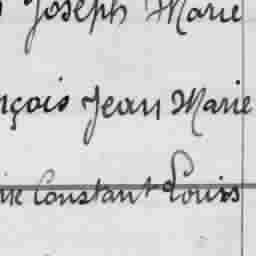 Joseph Marie
nçois Jean Marie
Constant Louis